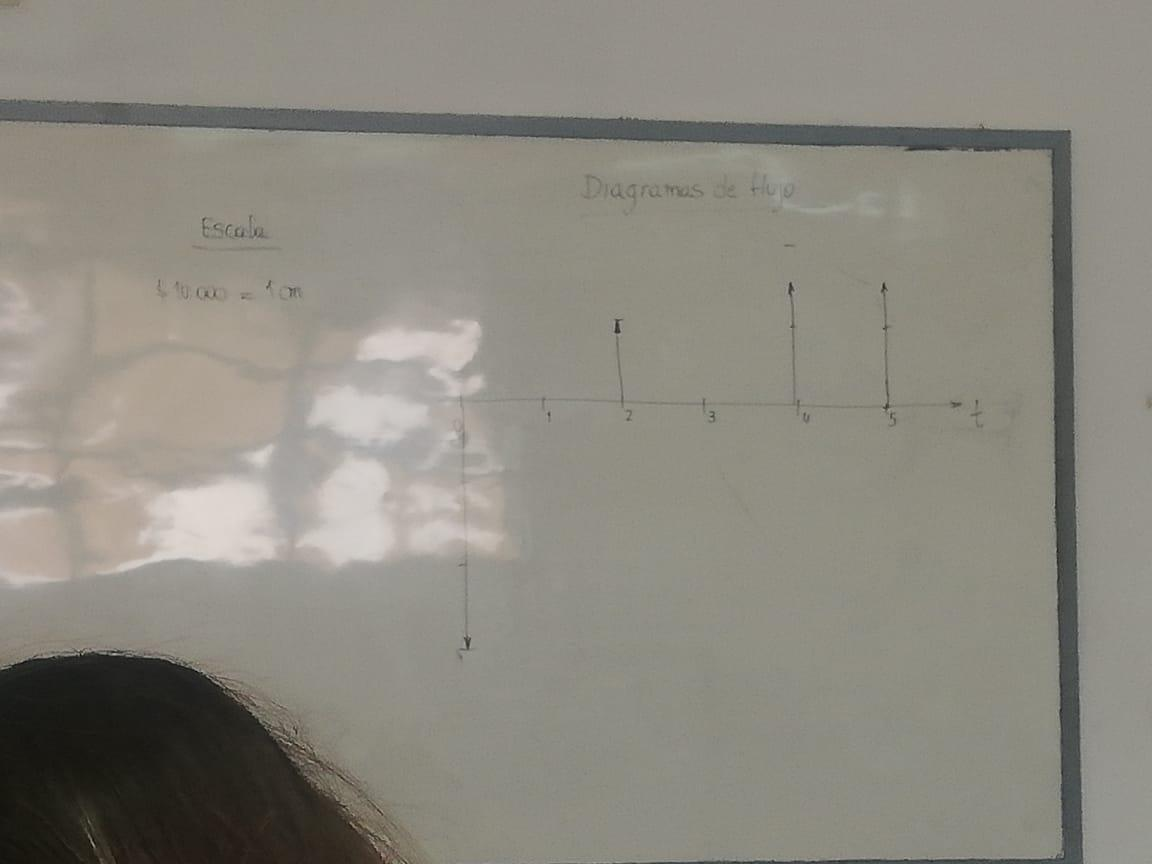 Diagramas de flujo
Escala
$10.000 = 1 cm
0 1 2 3 4 5 t